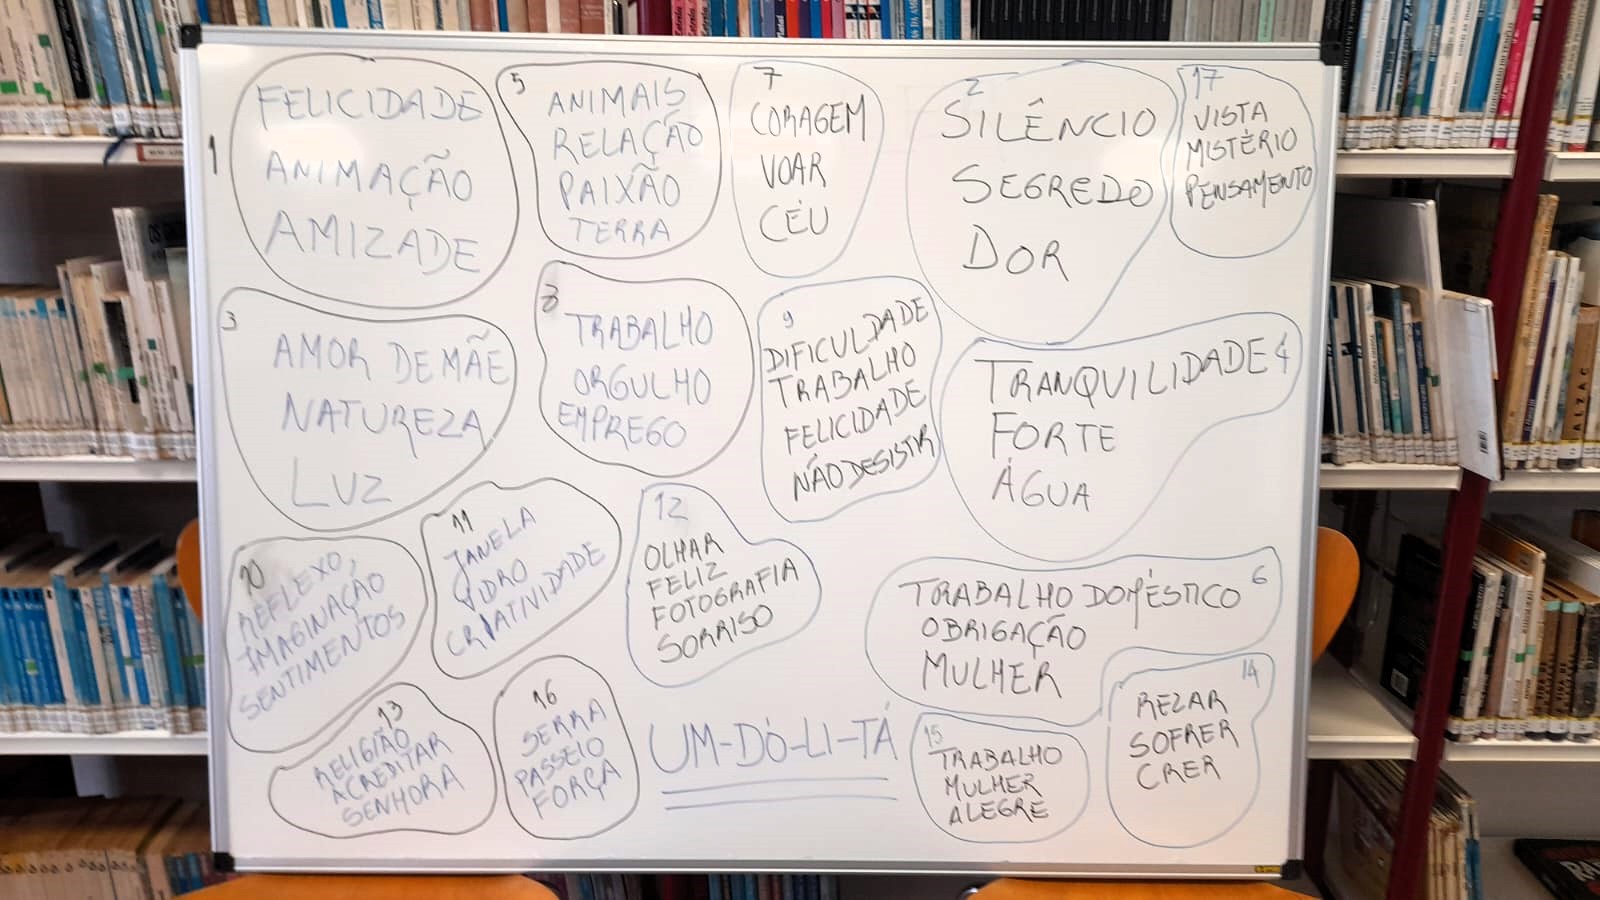 1
FELICIDADE
ANIMAÇÃO
AMIZADE
5
ANIMAIS
RELAÇÃO
PAIXÃO
TERRA
7
CORAGEM
VOAR
CÉU
2
SILÊNCIO
SEGREDO
DOR
17
VISTA
MISTÉRIO
PENSAMENTO
3
AMOR DE MÃE
NATUREZA
LUZ
8
TRABALHO
ORGULHO
EMPREGO
9
DIFICULDADE
TRABALHO
FELICIDADE
NÃO DESISTIR
TRANQUILIDADE 4
FORTE
ÁGUA
10
REFLEXO,
IMAGINAÇÃO
SENTIMENTOS
11
JANELA
VIDRO
CRIATIVIDADE
12
OLHAR
FELIZ
FOTOGRAFIA
SORRISO
TRABALHO DOMÉSTICO 6
OBRIGAÇÃO
MULHER
13
RELIGIÃO
ACREDITAR
SENHORA
16
SERRA
PASSEIO
FORÇA
UM-DÓ-LI-TÁ
15
TRABALHO
MULHER
ALEGRE
14
REZAR
SOFRER
CRER
BALZAC